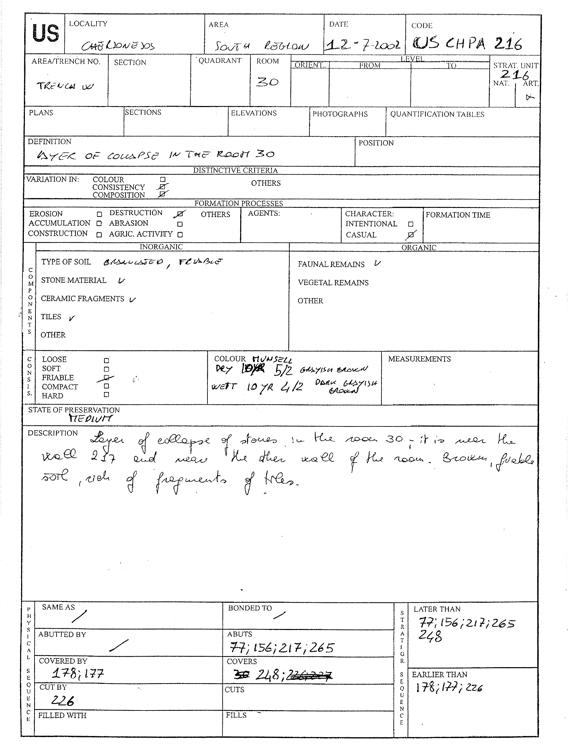 US
LOCALITY
CHERSONESOS
AREA
SOUTH REGION
DATE
12-7-2002
CODE
US CHPA 216
AREA/TRENCH NO.
TRENCH W
SECTION
QUADRANT
ROOM
30
LEVEL
ORIENT. FROM TO
STRAT. UNIT
216
NAT. ART.
PLANS
SECTIONS
ELEVATIONS
PHOTOGRAPHS
QUANTIFICATION TABLES
DEFINITION
LAYER OF COLLAPSE IN THE ROOM 30
POSITION
DISTINCTIVE CRITERIA
VARIATION IN: COLOUR
CONSISTENCY
COMPOSITION
OTHERS
FORMATION PROCESSES
EROSION DESTRUCTION OTHERS
ACCUMULATION ABRASION
CONSTRUCTION AGRIC. ACTIVITY
AGENTS:
CHARACTER:
INTENTIONAL
CASUAL
FORMATION TIME
COMPONENTS
INORGANIC
TYPE OF SOIL GRANULATED, FRIABLE
STONE MATERIAL ✓
CERAMIC FRAGMENTS ✓
TILES ✓
OTHER
ORGANIC
FAUNAL REMAINS ✓
VEGETAL REMAINS
OTHER
CONSIS.
LOOSE
SOFT
FRIABLE
COMPACT
HARD
COLOUR MUNSELL
DRY 10YR 5/2 GRAYISH BROWN
WETT 10 YR 4/2 DARK GRAYISH
BROWN
MEASUREMENTS
STATE OF PRESERVATION
MEDIUM
DESCRIPTION Layer of collapse of stones in the room 30; it is near the
wall 217 and near the other wall of the room. Brown, friable
soil, rich of fragments of tiles.
PHYSICAL SEQUENCE
SAME AS
/
BONDED TO
/
ABUTTED BY
/
ABUTS
77; 156; 217; 265
COVERED BY
178; 177
COVERS
248;
CUT BY
226
CUTS
FILLED WITH
FILLS
STRATIGR. SEQUENCE
LATER THAN
77; 156; 217; 265
248
EARLIER THAN
178; 177; 226